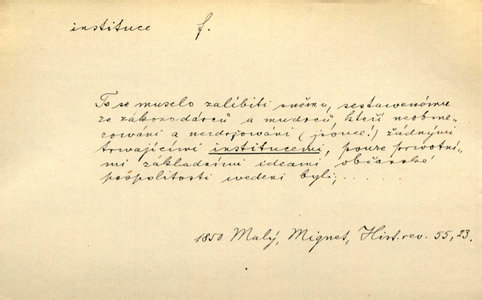 instituce f.
To se muselo zalíbiti sněmu, sestawenému
ze zákonodárců a mudrců, kteří neobme-
zowáni a nezdržowáni (pouze!) žádnými
trwajícími institucemi, pouze prwotní-
mi základními ideami občanské
pospolitosti wedeni byli; ..
1850 Malý, Mignet, Hist. rev. 55, 23.